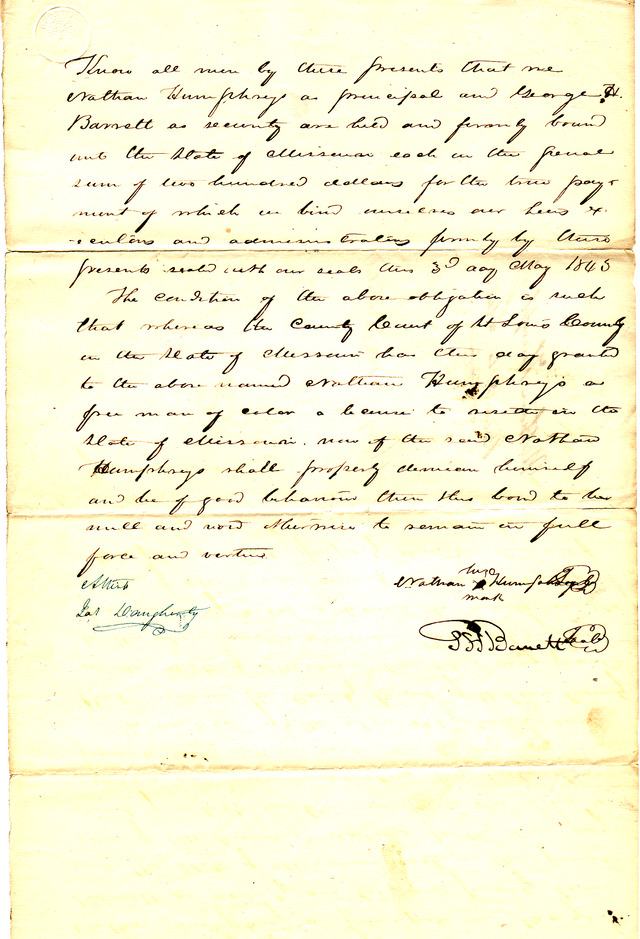 Know all men by these presents that we
Nathan Humphreys as principal and George H.
Barrett as security are held and firmly bound
unto the State of Missouri each in the penal
sum of two hundred dollars for the true pay-
ment of which we bind ourselves our heirs ex-
-ecutors and administrators firmly by these
presents sealed with our seals this 3d day May 1843
The condition of the above obligation is such
that whereas the County Court of St Louis County
in the State of Missouri has this day granted
to the above named Nathan Humphreys a
free man of color a license to reside in the
State of Missouri. now if the said Nathan
Humphreys shall properly demean himself
and be of good behaviour then this bond to be
null and void otherwise to remain in full
force and virtue
Attest
Jas Dougherty
his
Nathan x Humphreys Seal
mark
G H Barrett Seal